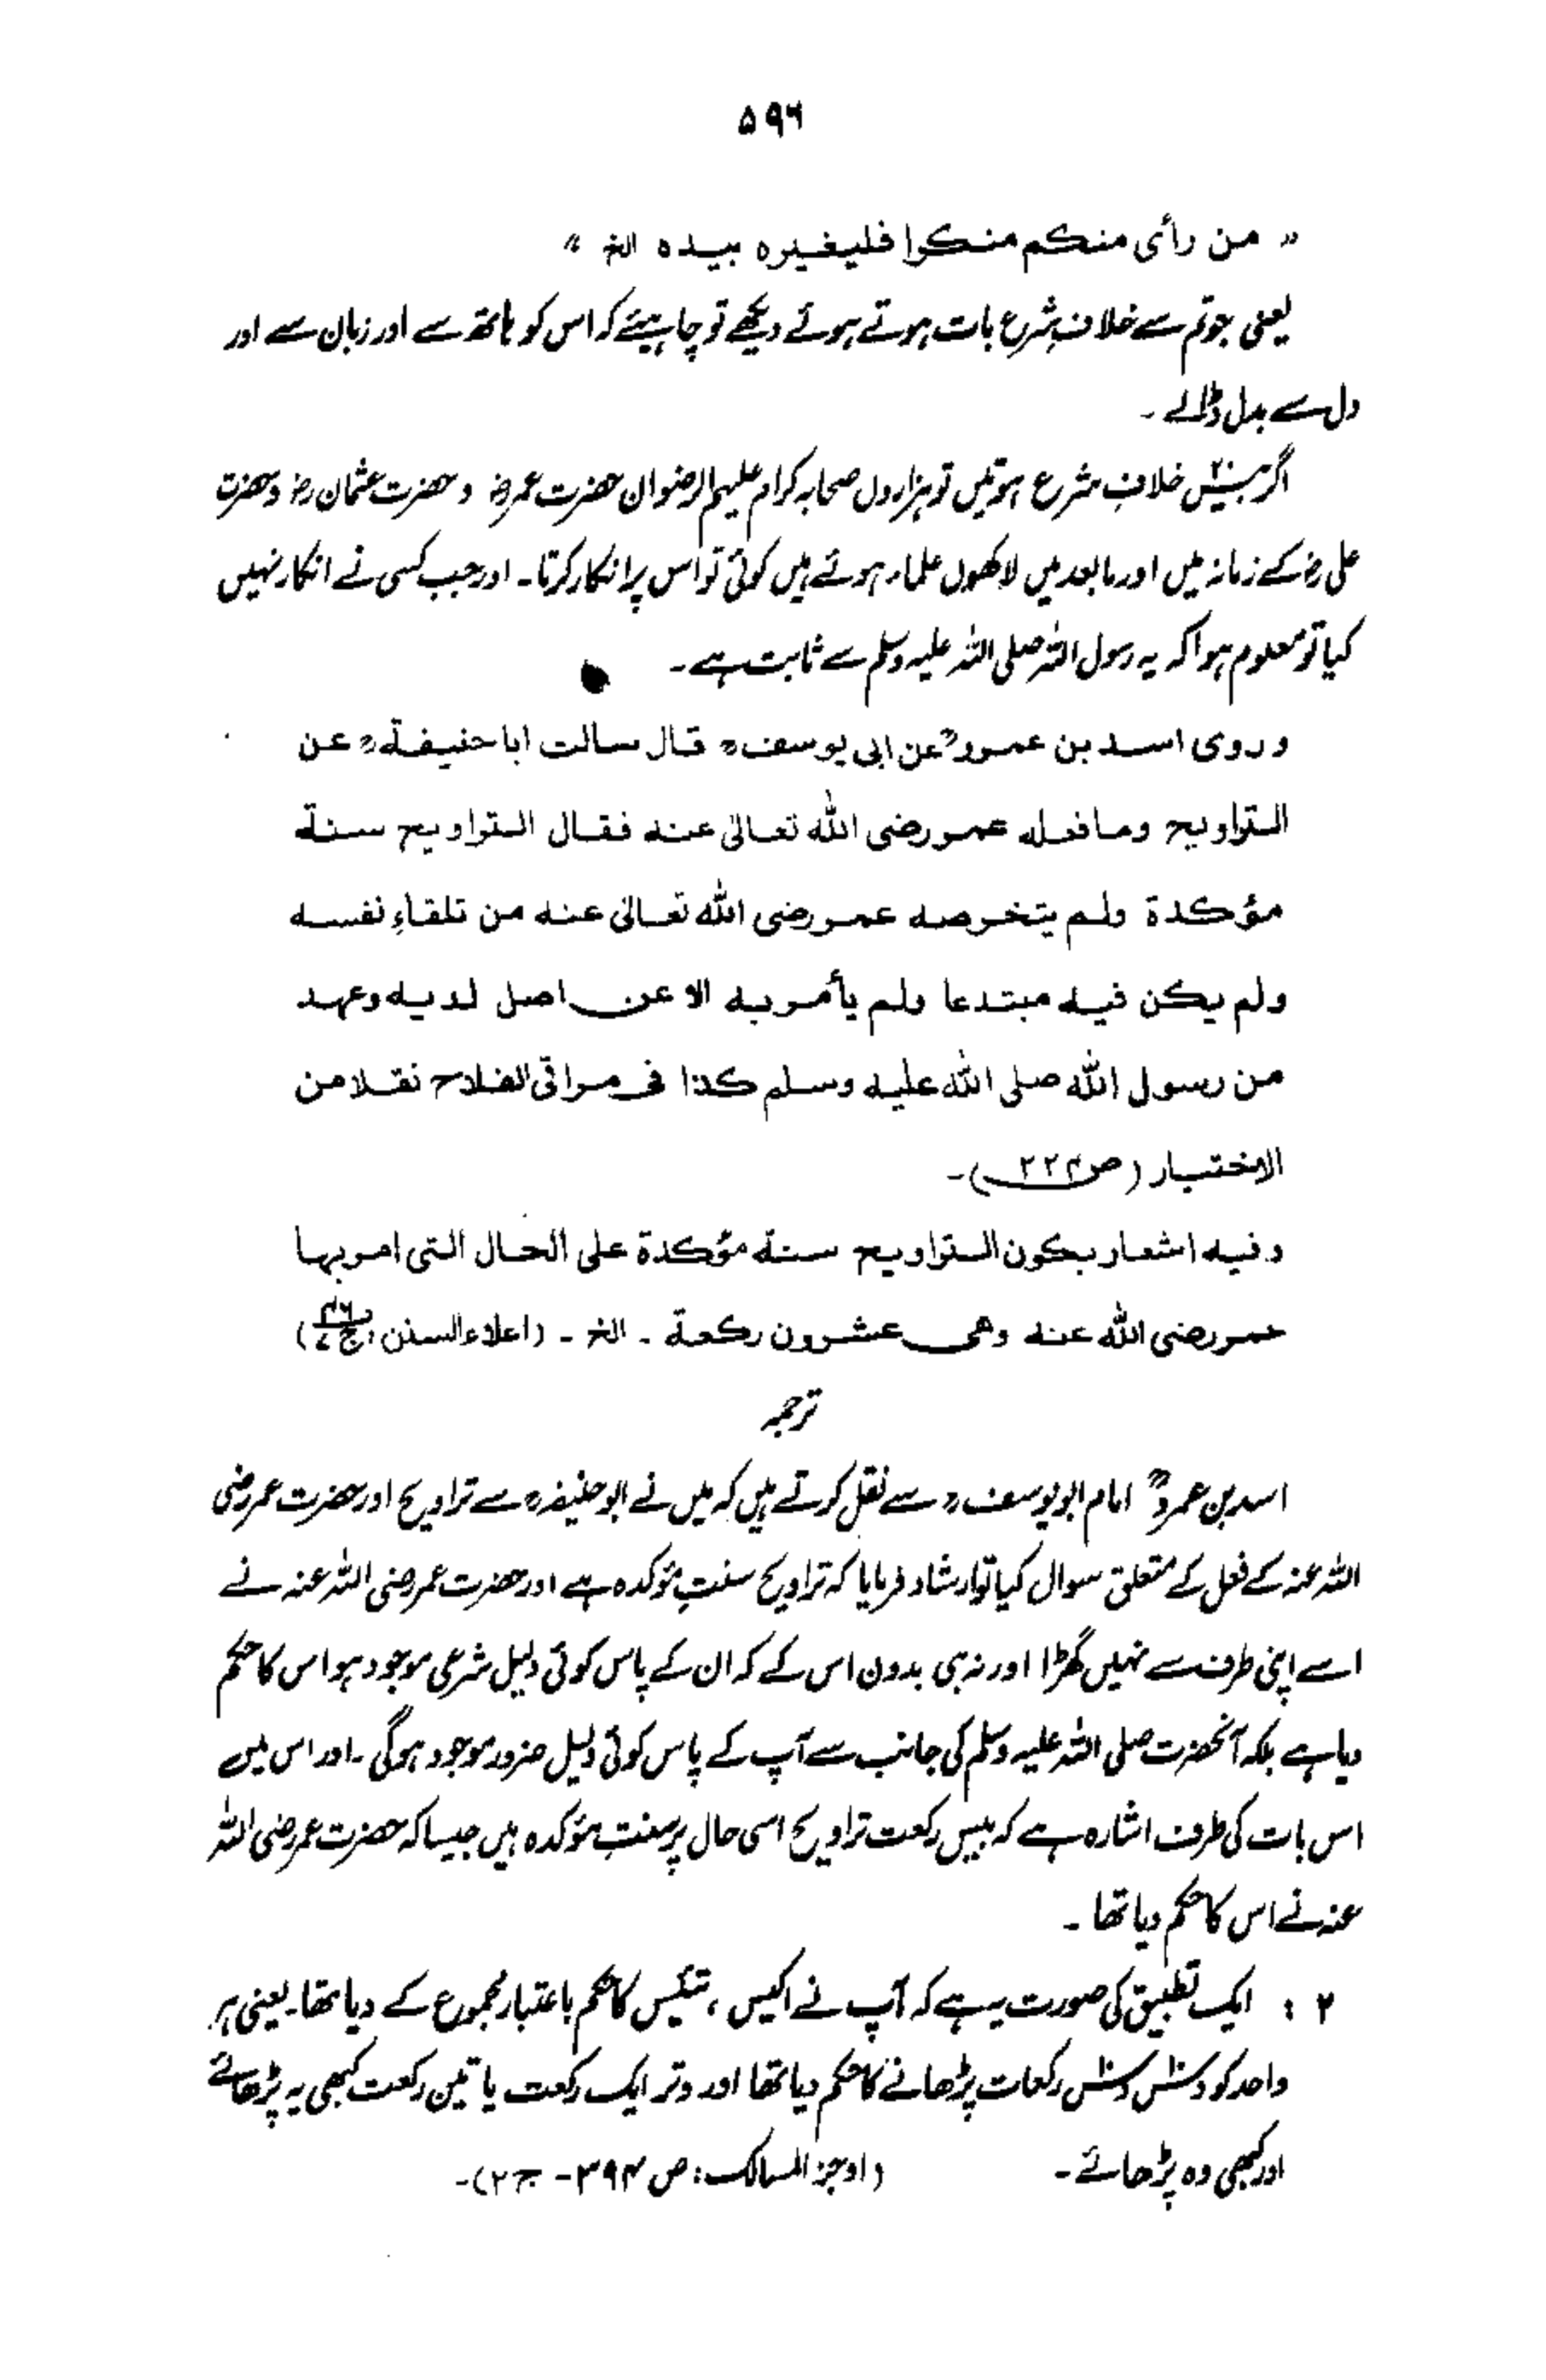 ۵۹۶
" من رأى منكم منكرا فليغيره بيده الخ "
یعنی جو تم سے خلافِ شرع بات ہوتے ہوئے دیکھے تو چاہیئے کہ اس کو ہاتھ سے اور زبان سے اور
دل سے بدل ڈالے ۔
اگر بیسؔ خلافِ شرع ہوتیں تو ہزاروں صحابہ کرام علیہم الرضوان حضرت عمرؓ و حضرت عثمانؓ و حضرت
علیؓ کے زمانہ میں اور مابعد میں لاکھوں علماء ہوئے ہیں کوئی تو اس پر انکار کرتا۔ اور جب کسی نے انکار نہیں
کیا تو معلوم ہوا کہ یہ رسول اللہ صلی اللہ علیہ وسلم سے ثابت ہے۔
وروى اسد بن عمروؒ عن ابى يوسفؒ قال سالت ابا حنيفةؒ عن
التراويح وما فعله عمر رضى الله تعالى عنه فقال التراويح سنة
مؤكدة ولم يتخرصه عمر رضى الله تعالى عنه من تلقاءِ نفسه
ولم يكن فيه مبتدعا ولم يأمر به الا عن اصل لديه وعهد
من رسول الله صلى الله عليه وسلم كذا فى مراقى الفلاح نقلا من
الاختيار (ص ۲۲۴)۔
وفيه اشعار بكون التراويح سنة مؤكدة على الحال التى امر بها
عمر رضى الله عنه وهى عشرون ركعة ۔ الخ ۔ (اعلاء السنن، ج ۷ ۴۶)
ترجمہ
اسد بن عمروؒ امام ابو یوسفؒ سے نقل کرتے ہیں کہ میں نے ابو حنیفہؒ سے تراویح اور حضرت عمر رضی
اللہ عنہ کے فعل کے متعلق سوال کیا تو ارشاد فرمایا کہ تراویح سنتِ مؤکدہ ہے اور حضرت عمر رضی اللہ عنہ نے
اسے اپنی طرف سے نہیں گھڑا اور نہ ہی بدون اس کے کہ ان کے پاس کوئی دلیل شرعی موجود ہو اس کا حکم
دیا ہے بلکہ آنحضرت صلی اللہ علیہ وسلم کی جانب سے آپ کے پاس کوئی دلیل ضرور موجود ہوگی ۔ اور اس میں
اس بات کی طرف اشارہ ہے کہ بیس رکعت تراویح اسی حال پر سنتِ مؤکدہ ہیں جیسا کہ حضرت عمر رضی اللہ
عنہ نے اس کا حکم دیا تھا ۔
۲ : ایک تطبیق کی صورت یہ ہے کہ آپ نے اکیس ، تئیس کا حکم باعتبار مجموع کے دیا تھا۔ یعنی ہر
واحد کو دسؔ دسؔ رکعات پڑھانے کا حکم دیا تھا اور وتر ایک رکعت یا تین رکعت کبھی یہ پڑھائے
اور کبھی وہ پڑھائے۔ (اوجز المسالک: ص ۳۹۴ - ج ۲)۔